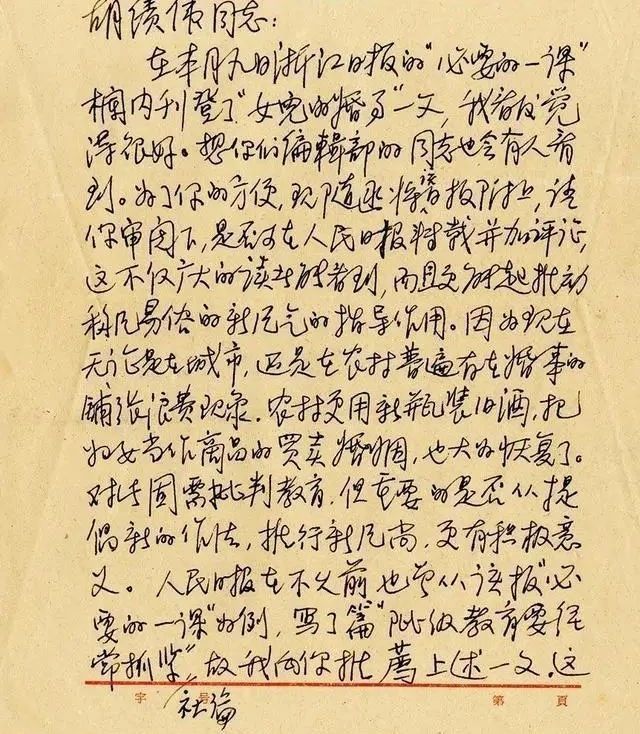 胡绩伟同志:
在本月九日浙江日报的“必要的一课”
栏内刊登了“女儿的婚事”一文,我看后觉
得很好。想你们编辑部的同志也会有人看
到。为了你的方便,现随函将该报附上,请
你审阅下,是否可在人民日报转载并加评论,
这不仅广大的读者能看到,而且更能起推动
移风易俗的新风气的指导作用。因为现在
无论是在城市,还是在农村普遍存在婚事的
铺张浪费现象.农村更用新瓶装旧酒,把
妇女当作商品的买卖婚姻,也大为恢复了。
对此固需批判教育,但重要的是否从提
倡新的作法,推行新风尚,更有积极意
义。人民日报在不久前也曾从该报“必
要的一课”为例,写了篇“阶级教育要经
常抓紧”社论 故我向你推荐上述一文.这
字 号 第 頁